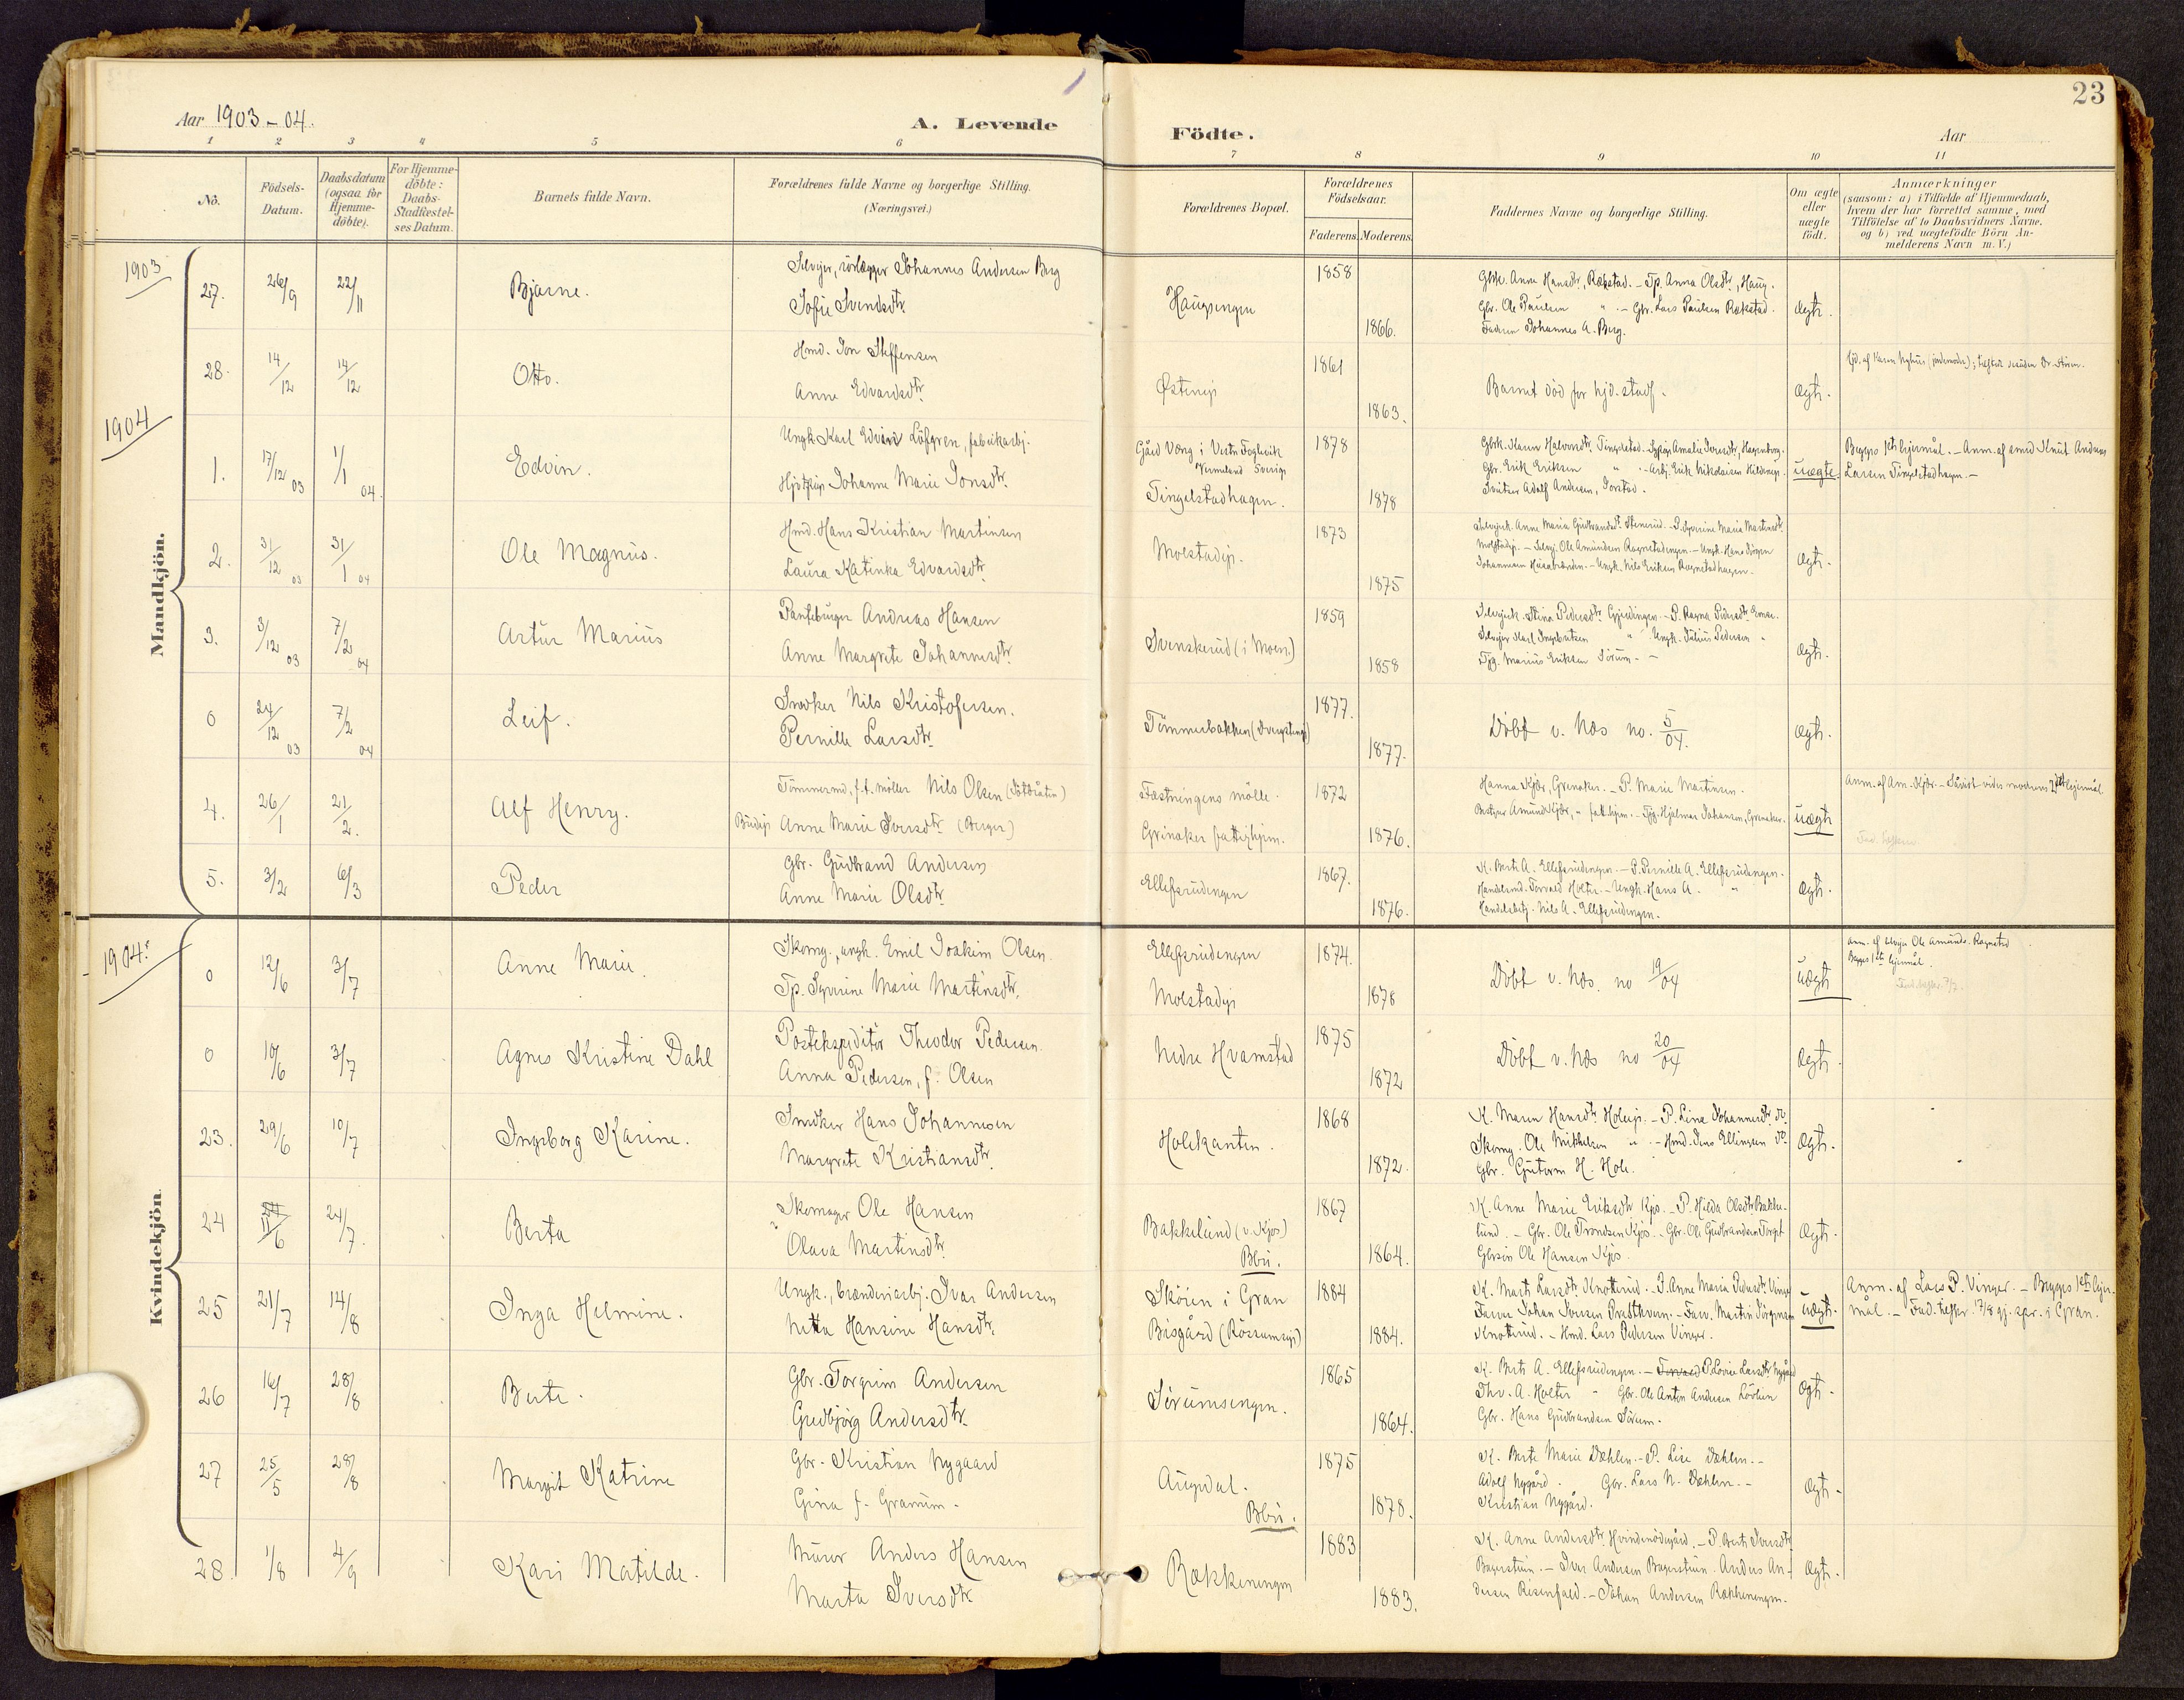 23
Aar 1903-04.
A. Levende
Födte.
Aar
1 2 3 4 5 6 7 8 9 10 11
No.
Födsels-
Datum.
Daabsdatum
(ogsaa for
Hjemme-
döbte).
For Hjemme-
döbte:
Daabs-
Stadfæstel-
ses Datum.
Barnets fulde Navn.
Forældrenes fulde Navne og borgerlige Stilling.
(Næringsvei.)
Forældrenes Bopæl.
Forældrenes
Födselsaar.
Faderens. Moderens.
Faddernes Navne og borgerlige Stilling.
Om ægte
eller
uægte
födt.
Anmærkninger
(saasom: a) i Tilfælde af Hjemmedaab,
hvem der har forrettet samme, med
Tilföielse af to Daabsvidners Navne.
og b) ved uægtefödte Börn An-
melderens Navn m. V.)
Mandkjön.
1903
27. 26/9 22/11 Bjarne.
Selvejer, rörlægger Johannes Andersen Berg
Sofie Svendsdtr.
Haugsengen
1858
1866.
Gbrk. Anne Hansdtr, Rækstad. - Tp. Anna Olsdtr, Haug.
Gbr. Ole Paulsen " - Gbr. Lars Paulsen Rækstad.
Faderen Johannes A. Berg.
Ægte.
28. 14/12 14/12 Otto.
Hmd. Jon Steffensen
Anne Edvardsdtr.
Østeneje
1861
1863.
Barnet död før hjd. stadf.
Ægte.
1904
1. 17/12 03 1/1 04. Edvin.
Ungk. Karl Edvin Löfgren, fabrikarbj.
Johanne Marie Jonsdtr.
Gård Væng i Vestre
Vermeland Sverige
Tingelstadhagen.
1878
1878
Gbrk. Karen Halvorsdtr. Tingelstad.
Gbr. Erik Eriksen " - Arbj. Erik Nikolaisen
Adolf Andersen,
uægte.
Begges 1ste lejermål. - Anm. af Knut Andreas
Larsen Tingelstadhagen -
2. 31/12 03 31/1 04 Ole Magnus.
Hmd. Hans Kristian Martinsen
Laura Katinka Edvardsdtr.
Molstadeje.
1873
1875
Anne Maria Gudbrandsdtr.
Molstadeje. - Selvej. Ole Amundsen Ragnstadengen. - Ungk. Hans Jörgen
Johannesen - Ungk. Nils Eriksen Ragnstadhagen.
Ægte.
3. 3/12 03 7/2 04 Artur Marius
Panteburger Andreas Hansen
Anne Margrete Johannesdtr.
Svenskerud (i Moen.)
1859
1858
Stina Pedersdtr. - P. Ragna Pedersdtr
Selvejer Karl Ingebretsen " Ungk. Julius Pedersen "
Tjg. Marius Eriksen Sörum. -
Ægte.
0 24/12 03 7/2 04 Leif.
Snedker Nils Kristofersen.
Pernille Larsdtr.
Tömmerbakken
1877.
1877.
Döbt v. Næs no. 5/04.
Ægte.
4. 26/1 21/2. Alf Henry.
Tömmermd, f.t. möller Nils Olsen
Anne Marie Iversdtr (Berger)
Fæstningens mölle.
Grinaker fattighjem.
1872
1876.
Hanna Kjös, Grenaker. - P. Marie Martinsen.
Bestyrer Amund Kjös, " fattighjem. - Tjg. Hjalmar Johansen, Grenaker.
uægte
Anm. af Am. Kjös.
5. 3/2 6/3 Peder
Gbr. Gudbrand Andersen
Anne Marie Olsdtr.
Ellefsrudengen
1867.
1876.
K. Berte A. Ellefsrudengen. - P. Pernille A. Ellefsrudengen.
Handelsmd. Torvald Holter. - Ungk. Hans A. "
Handelsbetj. Nils A. Ellefsrudengen.
Ægte.
Kvindekjön.
1904.
0 12/6 3/7 Anne Marie.
Skomg., ungk. Emil Joakim Olsen.
Tp. Syverine Marie Martinsdtr.
Ellefsrudengen
Molstadeje
1874.
1878
Döbt v. Næs. no 19/04
uægte
Anm. af Selvejer Ole Amunds. Ragnstad
Begges 1ste lejermål.
0 10/6 3/7 Agnes Kristine Dahl
Postekspeditör Theodor Pedersen.
Anna Pedersen, f. Olsen
Nedre Hvamstad
1875
1872
Döbt v. Næs no 20/04
Ægte.
23. 29/6 10/7 Ingeborg Karine.
Snedker Hans Johannesen
Margrete Kristiansdtr.
Holekanten.
1868
1872.
K. Maren Hansdtr Holeeje. - P. Lina Johannesdtr do
Skomg. Ole Mikkelsen " - Hmd. Jens Ellingsen do
Gbr. Guttorm H. Hole.
Ægte.
24 11/6 24/7. Berta
Skomager Ole Hansen
Olava Martinsdtr.
Bakkelund (v. Kjos)
Bbu.
1867
1864.
K. Anne Marie Eriksdtr Kjos. - P. Hilda Olsdtr Bakke-
lund. - Gbr. Ole Trondsen Kjos. - Gbr. Ole Gudbrandsen
Gbrsön Ole Hansen Kjos.
Ægte.
25 21/7 14/8 Inga Helmine.
Ungk., brænderiarbj. Ivar Andersen
Netta Hansine Hansdtr.
Skören i Gran
Bisgård (Rössumseje)
1884
1884.
K. Marte Larsdtr. Knotterud. - P. Anne Maria Pedersdtr Vinger
Farver Johan Iversen - Farv. Martin Jörgensen
Knotterud. - Hmd. Lars Pedersen Vinger.
uægte.
Anm. af Lars P. Vinger. - Begges 1ste lejer-
mål. - i Gran.
26 16/7 28/8 Berte.
Gbr. Torgrim Andersen
Gudbjörg Andersdtr.
Sörumsengen.
1865
1864.
K. Berte A. Ellefsrudengen. - P. Lovise Larsdtr Nygård
Thv. A. Holter " Gbr. Ole Anton Andersen Lövlien
Gbr. Hans Gudbrandsen Sörum.
Ægte.
27 25/5 28/8 Margit Katrine
Gbr. Kristian Nygaard
Gina f. Granum.
Augedal.
Bbu.
1875
1878.
K. Berte Marie Dæhlen. - P. Lise Dæhlen. -
Adolf Nygård. Gbr. Lars N. Dæhlen. -
Kristian Nygård.
Ægte.
28. 1/8 4/9 Kari Matilde.
Murer Anders Hansen
Marta Iversdtr
Rækkenengen
1883
1883.
K. Anne Andersdtr. - P. Berte Iversdtr
Bagerstuen. - Ivar Andersen Bagerstuen. Anders An-
dersen - Johan Andersen Rækkenengen.
Ægte.